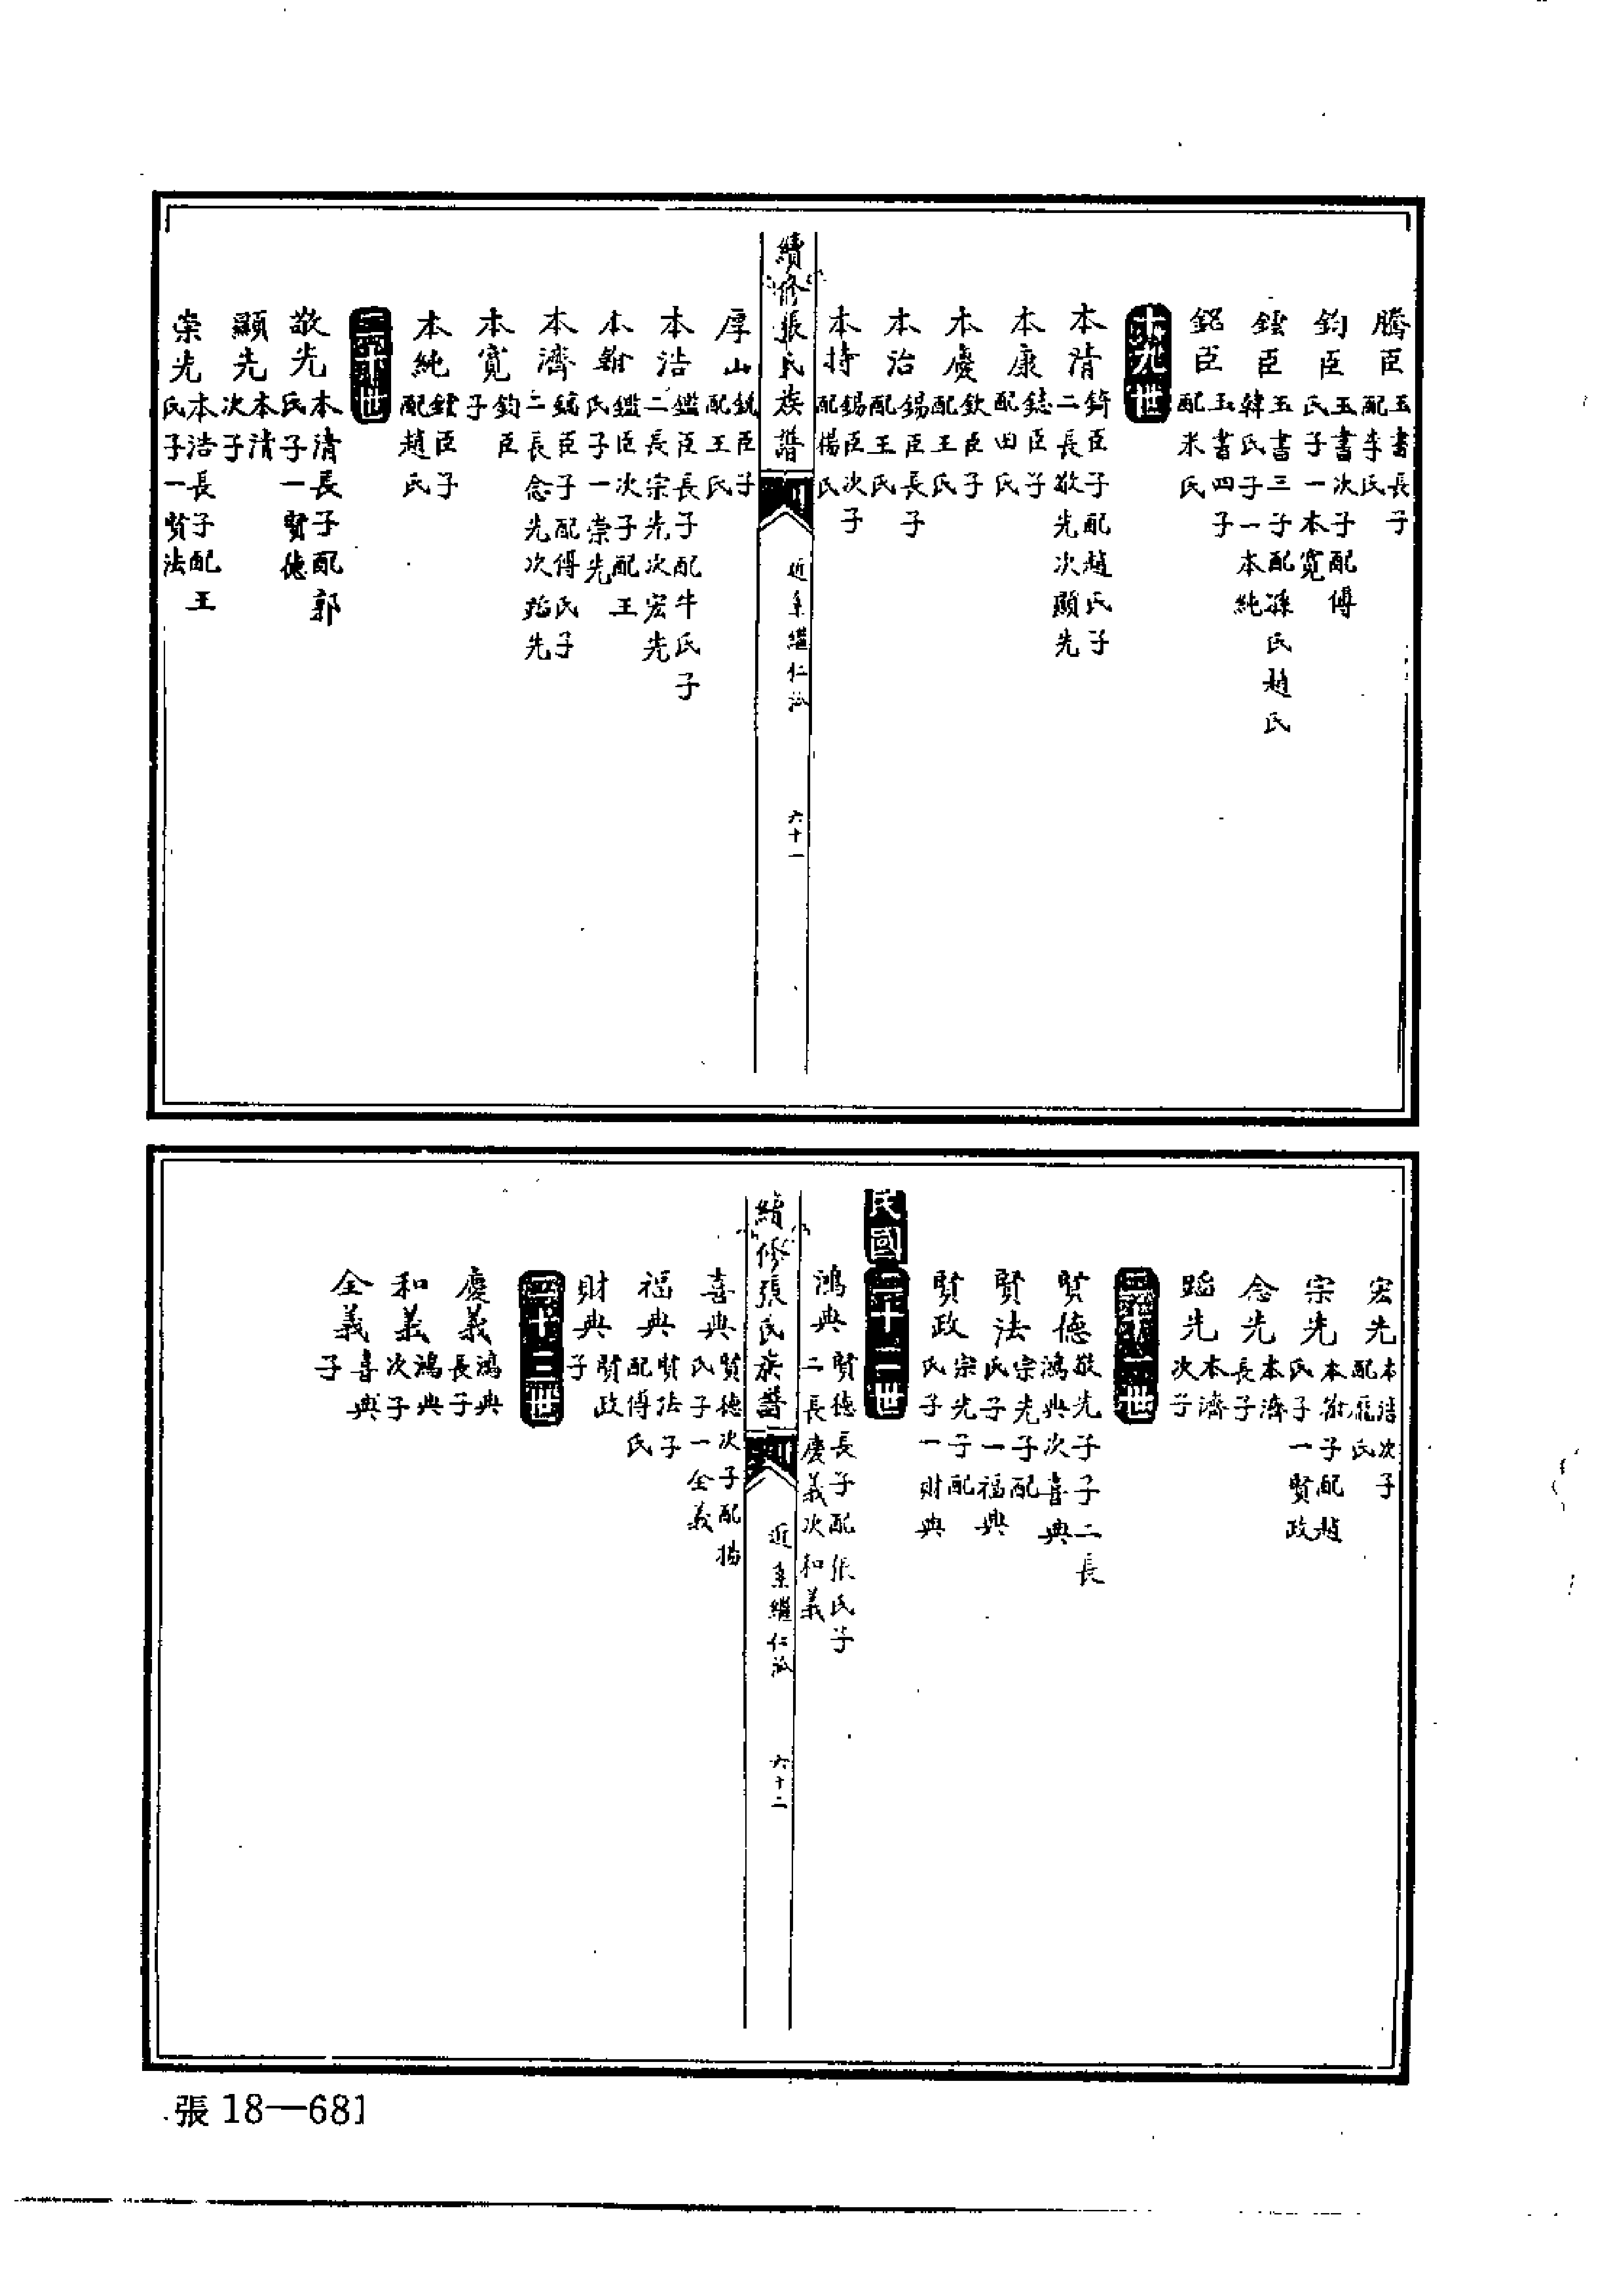 騰臣 玉書長子配李氏
鈞臣 玉書次子配傅氏子一本寬
鑅臣 玉書三子配孫氏趙氏韓氏子一本純
銘臣 玉書四子配米氏
十九世
本清 錡臣子配趙氏子二長敬先次顯先
本康 鋕臣子配田氏
本慶 欽臣子配王氏
本治 錫臣長子配王氏
本持 錫臣次子配楊氏
續修張氏族譜
近系繼仁派
六十一
厚山 銳臣子配王氏
本浩 鑑臣長子配牛氏子二長宗先次宏先
本翰 鑑臣次子配王氏子一崇先
本濟 鎬臣子配傅氏子二長念先次蹈先
本寬 鈞臣子
本純 臣子配趙氏
二十世
敬先 本清長子配郭氏子一賢德
顯先 本清次子
崇先 本浩長子配王氏子一賢法
宏先 本浩次子配龐氏
宗先 本翰子配趙氏子一賢政
念先 本濟長子
蹈先 本濟次子
二十一世
賢德 敬先子子二長鴻典次喜典
賢法 宗先子配氏子一福典
賢政 宗先子配氏子一財典
民國二十二世
鴻典 賢德長子配張氏子二長慶義次和義
續修張氏族譜
近系繼仁派
六十二
喜典 賢德次子配楊氏子一全義
福典 賢法子配傅氏
財典 賢政子
二十三世
慶義 鴻典長子
和義 鴻典次子
全義 喜典子
張 18—681